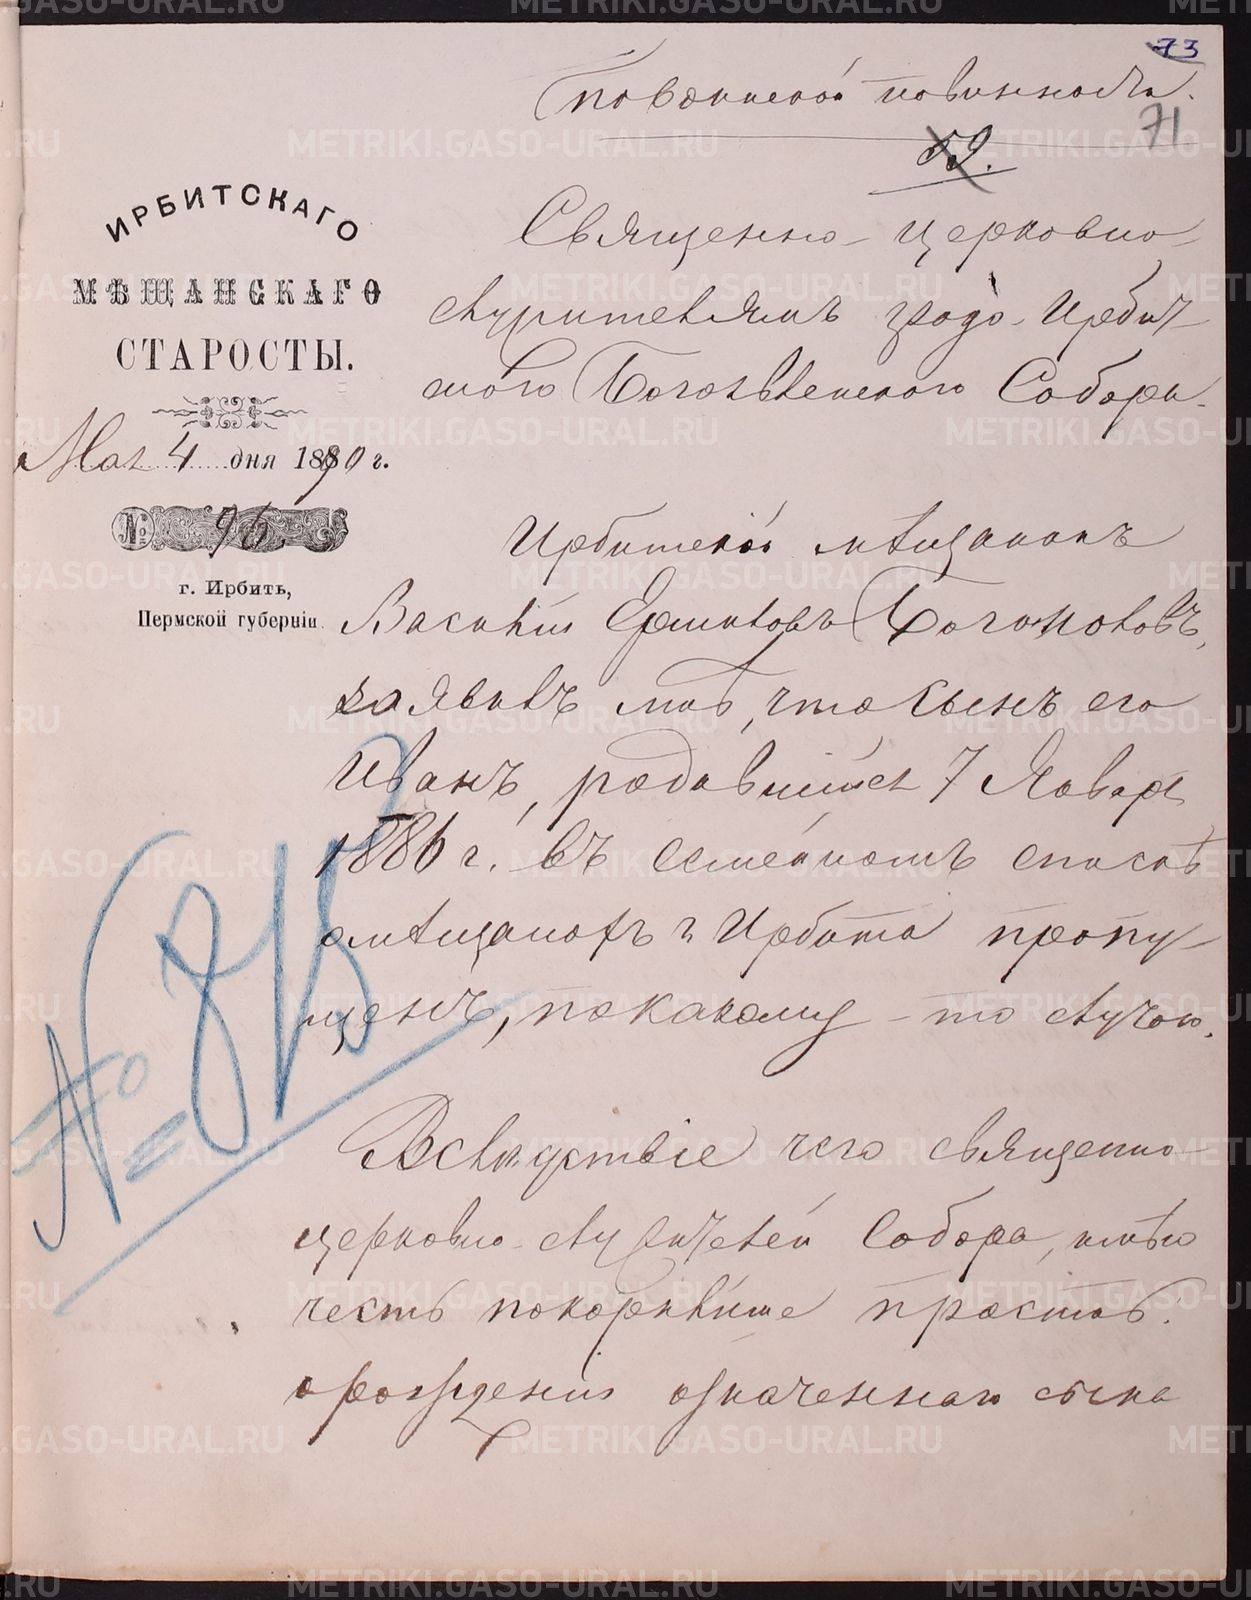 73
По воинской повинности.
71
59.
ИРБИТСКАГО
МѢЩАНСКАГО
СТАРОСТЫ.
Мая 4 дня 1890 г.
№ 96.
г. Ирбить,
Пермской губерніи
Священно-церковно-
служителямъ градо-Ирбит-
скаго Богоявленскаго Собора.
Ирбитскій мѣщанинъ
Василій Ермиловъ
заявилъ мнѣ, что сынъ его
Иванъ, родившійся 7 Января
1886 г. въ семейномъ спискѣ
мѣщанъ г. Ирбита пропу-
щенъ, по какому-то случаю.
Вслѣдствіе чего священно
церковно-служителей Собора, имѣю
честь покорнѣйше просить
о рожденіи означеннаго сына
METRIKI.GASO-URAL.RU